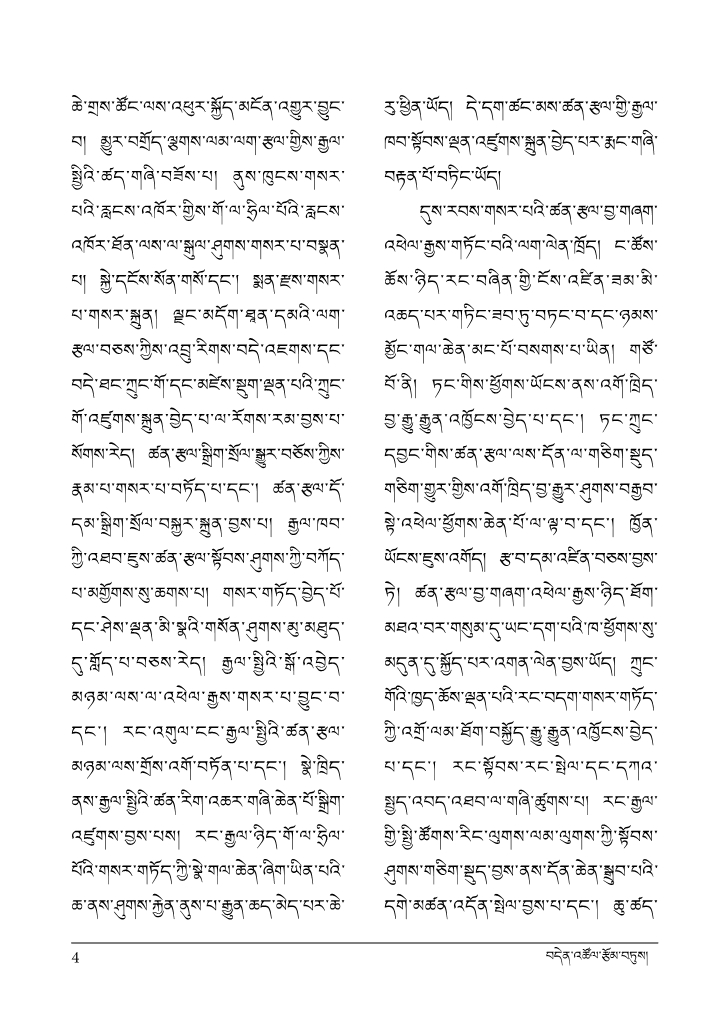 ཆེ་གྲས་ཚོང་ལས་འཕུར་སྐྱོད་མངོན་འགྱུར་བྱུང་
བ། མྱུར་བགྲོད་ལྕགས་ལམ་ལག་རྩལ་གྱིས་རྒྱལ་
སྤྱིའི་ཚད་གཞི་བཟོས་པ། ནུས་ཁུངས་གསར་
པའི་རླངས་འཁོར་གྱིས་གོ་ལ་ཧྲིལ་པོའི་རླངས་
འཁོར་ཐོན་ལས་ལ་སྐུལ་ཤུགས་གསར་པ་བསྣན་
པ། སྐྱེ་དངོས་སོན་གསོ་དང་། སྨན་རྫས་གསར་
པ་གསར་སྐྲུན། ལྗང་མདོག་ཐུན་དམའི་ལག་
རྩལ་བཅས་ཀྱིས་འབྲུ་རིགས་བདེ་འཇགས་དང་
བདེ་ཐང་ཀྲུང་གོ་དང་མཛེས་སྡུག་ལྡན་པའི་ཀྲུང་
གོ་འཛུགས་སྐྲུན་བྱེད་པ་ལ་རོགས་རམ་བྱས་པ་
སོགས་རེད། ཚན་རྩལ་སྒྲིག་སྲོལ་སྒྱུར་བཅོས་ཀྱིས་
རྣམ་པ་གསར་པ་བཏོད་པ་དང་། ཚན་རྩལ་དོ་
དམ་སྒྲིག་སྲོལ་བསྐྱར་སྐྲུན་བྱས་པ། རྒྱལ་ཁབ་
ཀྱི་འཐབ་ཇུས་ཚན་རྩལ་སྟོབས་ཤུགས་ཀྱི་བཀོད་
པ་མགྱོགས་སུ་ཆགས་པ། གསར་གཏོད་བྱེད་པོ་
དང་ཤེས་ལྡན་མི་སྣའི་གསོན་ཤུགས་མུ་མཐུད་
དུ་གློད་པ་བཅས་རེད། རྒྱལ་སྤྱིའི་སྒོ་འབྱེད་
མཉམ་ལས་ལ་འཕེལ་རྒྱས་གསར་པ་བྱུང་བ་
དང་། རང་འགུལ་ངང་རྒྱལ་སྤྱིའི་ཚན་རྩལ་
མཉམ་ལས་གྲོས་འགོ་བཏོན་པ་དང་། སྣེ་ཁྲིད་
ནས་རྒྱལ་སྤྱིའི་ཚན་རིག་འཆར་གཞི་ཆེན་པོ་སྒྲིག་
འཛུགས་བྱས་པས། རང་རྒྱལ་ཉིད་གོ་ལ་ཧྲིལ་
པོའི་གསར་གཏོད་ཀྱི་སྣེ་གལ་ཆེན་ཞིག་ཡིན་པའི་
ཆ་ནས་ཤུགས་རྐྱེན་ནུས་པ་རྒྱུན་ཆད་མེད་པར་ཆེ་
རུ་ཕྱིན་ཡོད། དེ་དག་ཚང་མས་ཚན་རྩལ་གྱི་རྒྱལ་
ཁབ་སྟོབས་ལྡན་འཛུགས་སྐྲུན་བྱེད་པར་རྨང་གཞི་
བརྟན་པོ་བཏིང་ཡོད།
དུས་རབས་གསར་པའི་ཚན་རྩལ་བྱ་གཞག་
འཕེལ་རྒྱས་གཏོང་བའི་ལག་ལེན་ཁྲོད། ང་ཚོས་
ཆོས་ཉིད་རང་བཞིན་གྱི་ངོས་འཛིན་ཟམ་མི་
འཆད་པར་གཏིང་ཟབ་ཏུ་བཏང་བ་དང་ཉམས་
མྱོང་གལ་ཆེན་མང་པོ་བསགས་པ་ཡིན། གཙོ་
བོ་ནི། ཏང་གིས་ཕྱོགས་ཡོངས་ནས་འགོ་ཁྲིད་
བྱ་རྒྱུ་རྒྱུན་འཁྱོངས་བྱེད་པ་དང་། ཏང་ཀྲུང་
དབྱང་གིས་ཚན་རྩལ་ལས་དོན་ལ་གཅིག་སྡུད་
གཅིག་གྱུར་གྱིས་འགོ་ཁྲིད་བྱ་རྒྱུར་ཤུགས་བརྒྱབ་
སྟེ་འཕེལ་ཕྱོགས་ཆེན་པོ་ལ་ལྟ་བ་དང་། ཁྱོན་
ཡོངས་ཇུས་འགོད། རྩ་བ་དམ་འཛིན་བཅས་བྱས་
ཏེ། ཚན་རྩལ་བྱ་གཞག་འཕེལ་རྒྱས་ཉིད་ཐོག་
མཐའ་བར་གསུམ་དུ་ཡང་དག་པའི་ཁ་ཕྱོགས་སུ་
མདུན་དུ་སྐྱོད་པར་འགན་ལེན་བྱས་ཡོད། ཀྲུང་
གོའི་ཁྱད་ཆོས་ལྡན་པའི་རང་བདག་གསར་གཏོད་
ཀྱི་འགྲོ་ལམ་ཐོག་བསྐྱོད་རྒྱུ་རྒྱུན་འཁྱོངས་བྱེད་
པ་དང་། རང་སྟོབས་རང་སྤེལ་དང་དཀའ་
སྤྱད་འབད་འཐབ་ལ་གཞི་ཚུགས་པ། རང་རྒྱལ་
གྱི་སྤྱི་ཚོགས་རིང་ལུགས་ལམ་ལུགས་ཀྱི་སྟོབས་
ཤུགས་གཅིག་སྡུད་བྱས་ནས་དོན་ཆེན་སྒྲུབ་པའི་
དགེ་མཚན་འདོན་སྤེལ་བྱས་པ་དང་། ཆུ་ཚད་
4
བདེན་འཚོལ་རྩོམ་བཏུས།